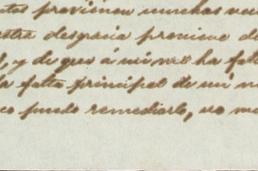 tas provienen muchas vec
estra desgracia proviene d
, y de que á mi me ha fal
a falta principal de mi m
co puedo remediarlo, no me